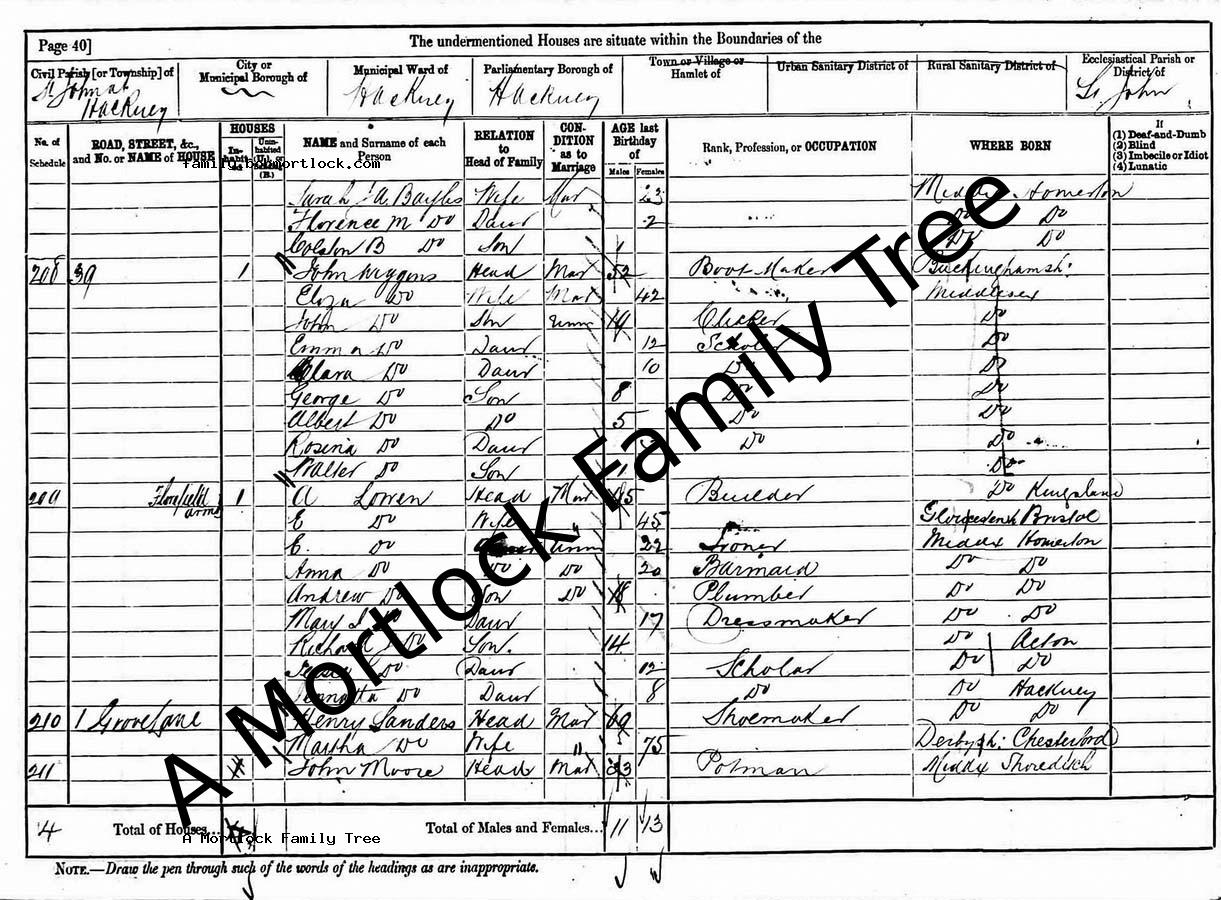 Page 40] The undermentioned Houses are situate within the Boundaries of the
Civil Parish [or Township] of City or Municipal Borough of Municipal Ward of Parliamentary Borough of Town or Village or Hamlet of Urban Sanitary District of Rural Sanitary District of Ecclesiastical Parish or District of
St John at Hackney Hackney Hackney St John
No. of Schedule ROAD, STREET, &c., and No. or NAME of HOUSE HOUSES Inhabited Uninhabited (U.), or (B.) NAME and Surname of each Person RELATION to Head of Family CONDITION as to Marriage AGE last Birthday of Males Females Rank, Profession, or OCCUPATION WHERE BORN If (1) Deaf-and-Dumb (2) Blind (3) Imbecile or Idiot (4) Lunatic
family.bobmortlock.com
Sarah A. Wife Mar 23 Middx. Homerton
Florence M Do Daur 2 Do Do
Colston B Do Son 1 Do Do
208 39 1 John Wiggins Head Mar 52 Boot Maker Buckinghamsh:
Eliza Do Wife Mar 42 Middlesex
John Do Son Unm 19 Clicker Do
Emma Do Daur 12 Scholar Do
Clara Do Daur 10 Do Do
George Do Son 8 Do Do
Albert Do Do 5 Do Do
Rosina Do Daur Do Do
Walter Do Son 1 Do
209 1 A Lowen Head Mar 45 Builder Do Kingsland
E Do Wife " 45 Bristol
E. Do Unm 22 Middx Homerton
Anna Do Do Do 20 Barmaid Do Do
Andrew Do Son Do 18 Plumber Do Do
Mary Do Daur 17 Dressmaker Do Do
Richard Do Son. 14 Do Acton
Do Daur 12 Scholar Do Do
Do Daur 8 Do Do Hackney
210 1 Grove Lane Henry Sanders Head Mar 69 Shoemaker Do Do
Martha Do Wife " 75 Derbysh: Chesterford
211 John Moore Head Mar 33 Potman Middx Shoreditch
4 Total of Houses... 4 Total of Males and Females... 11 13
A Mortlock Family Tree
NOTE.—Draw the pen through such of the words of the headings as are inappropriate.
A Mortlock Family Tree